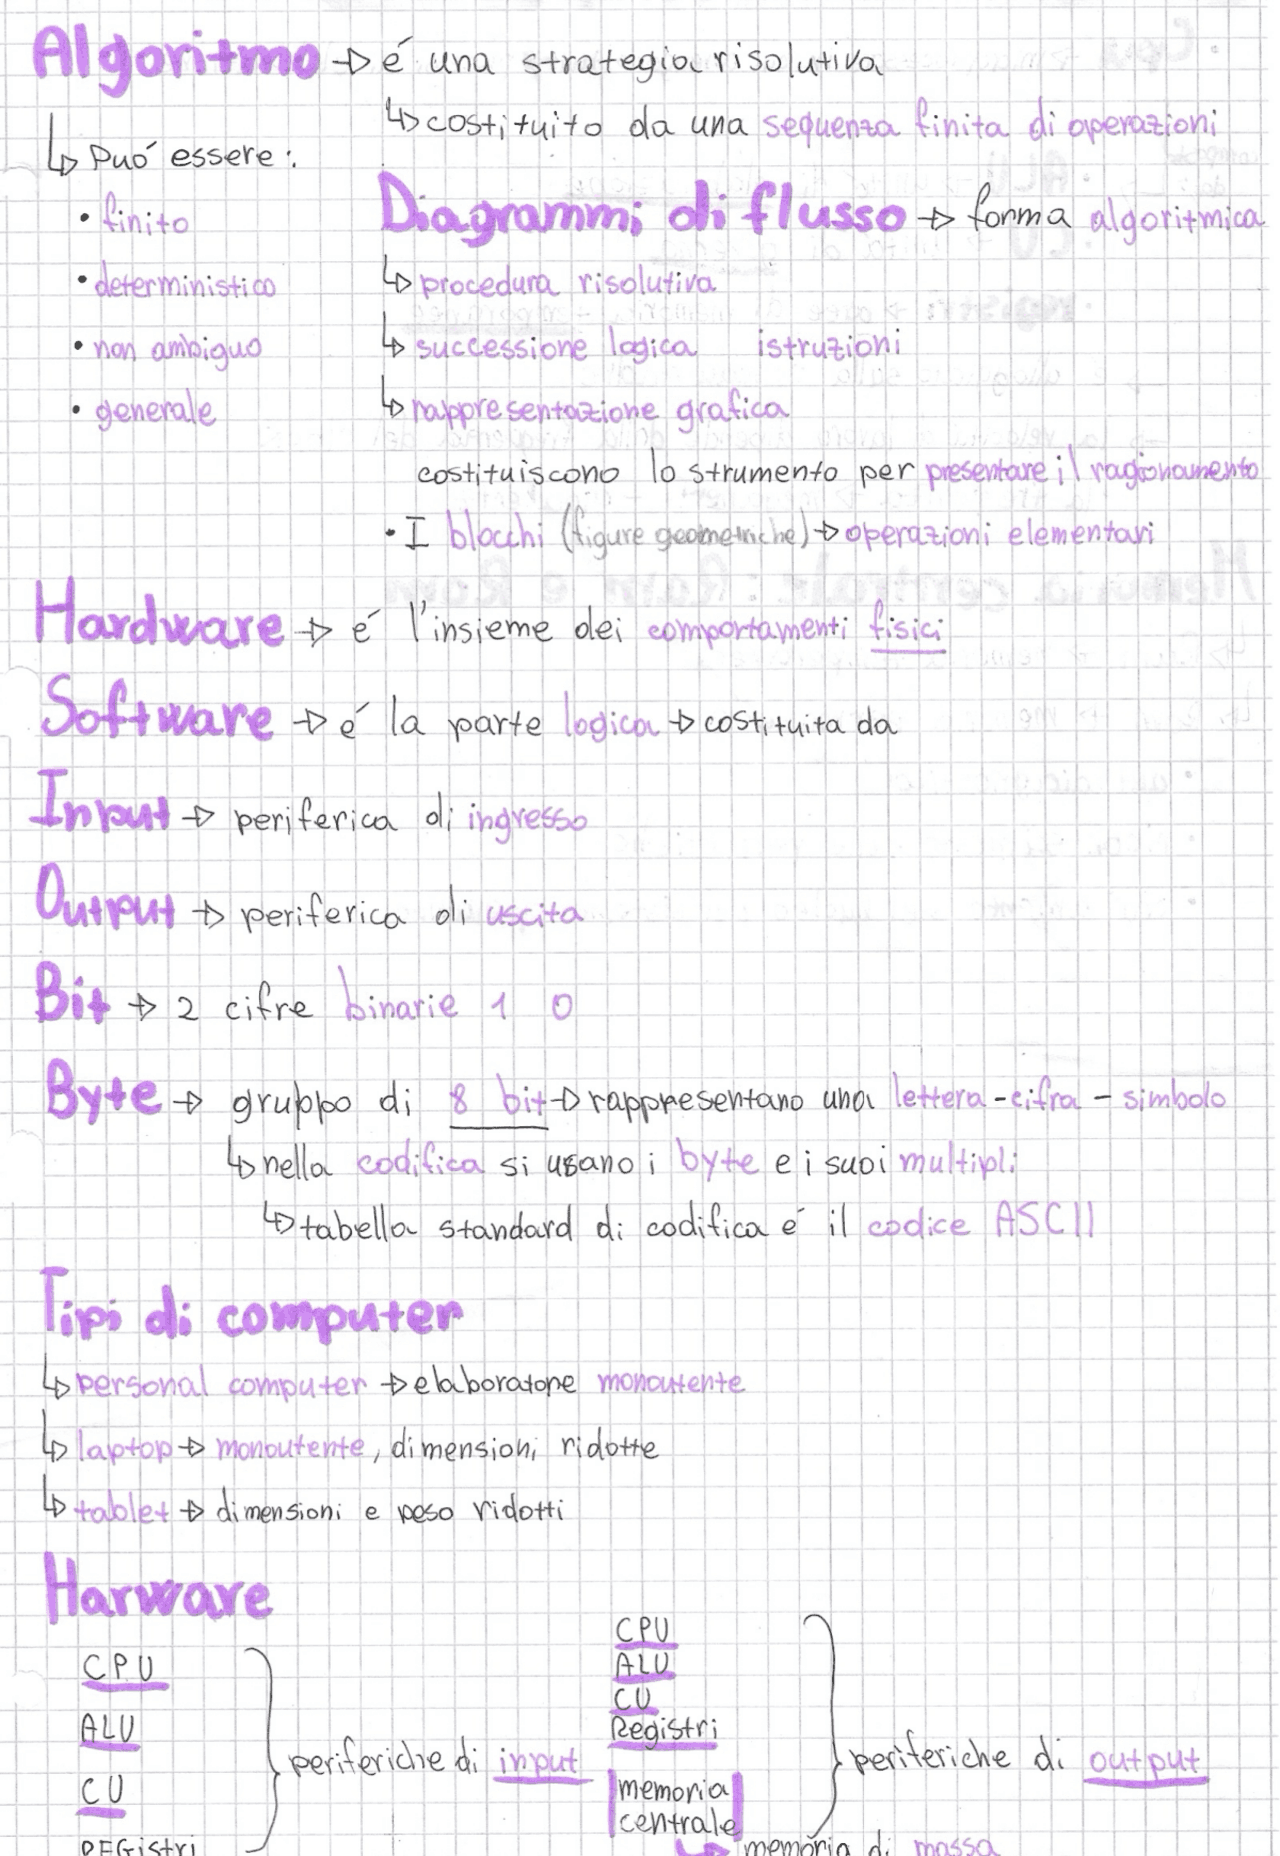 Algoritmo → é una strategia risolutiva
↳ costituito da una sequenza finita di operazioni
↳ Puó essere:
• finito
• deterministico
• non ambiguo
• generale
Diagrammi di flusso → forma algoritmica
↳ procedura risolutiva
↳ successione logica istruzioni
↳ rappresentazione grafica
costituiscono lo strumento per presentare il ragionamento
• I blocchi (figure geometriche) → operazioni elementari
Hardware → é l'insieme dei comportamenti fisici
Software → é la parte logica → costituita da
Input → periferica di ingresso
Output → periferica di uscita
Bit → 2 cifre binarie 1 0
Byte → gruppo di 8 bit → rappresentano una lettera - cifra - simbolo
↳ nella codifica si usano i byte e i suoi multipli
↳ tabella standard di codifica é il codice ASCII
Tipi di computer
↳ personal computer → elaboratore monoutente
↳ laptop → monoutente, dimensioni ridotte
↳ tablet → dimensioni e peso ridotti
Harware
CPU
ALU
CU
REGistri
periferiche di input
CPU
ALU
CU
Registri
memoria
centrale
↳ memoria di massa
periferiche di output